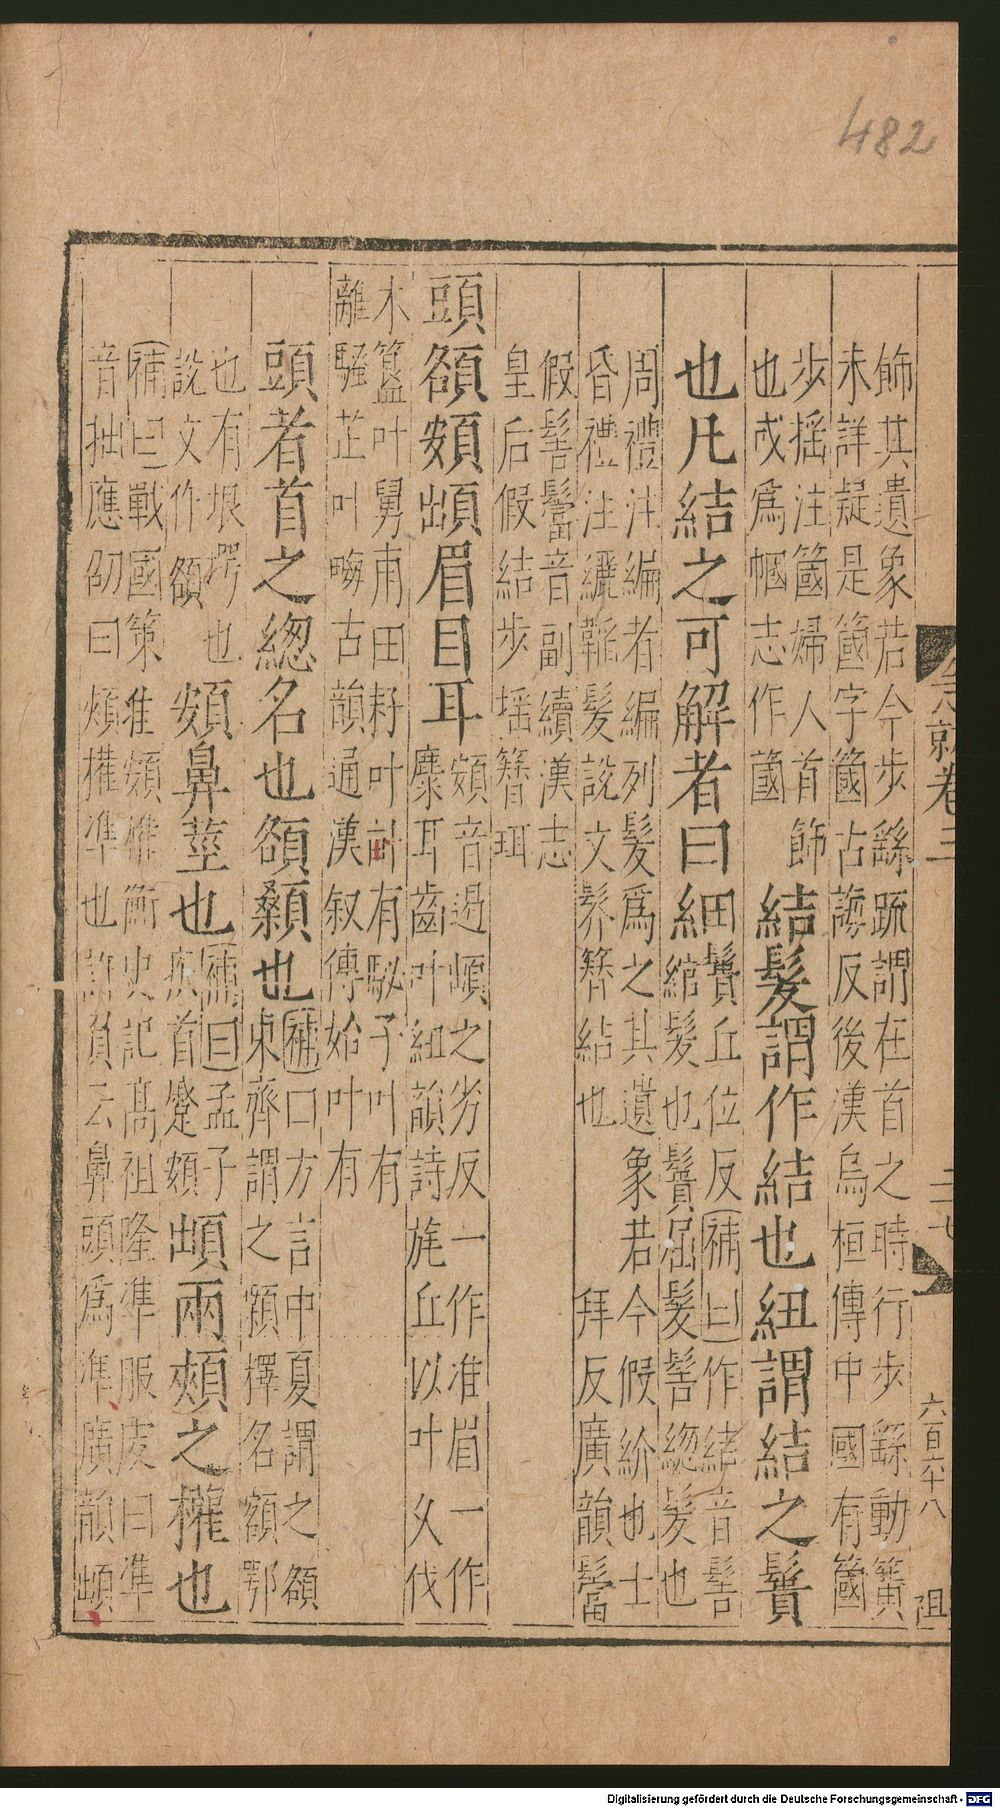 482
急就卷三 二七 六百二十八 阻
飾其遺象若今步繇䟽謂在首之時行步繇動簧
未詳疑是箇字簂古誨反後漢烏桓傳中國有簂
步摇注簂婦人首飾
也或爲幗志作蔮
結髮謂作結也紐謂結之鬒
也凡結之可解者曰紐
鬒丘位反補曰作緒音髻
綰髮也鬒屈髮髻緫髮也
周禮注編者編列髮爲之其遺象若今假紒也士
昏禮注纚韜髮說文髺簪結也 拜反廣韻鬙
假髻鬙音副續漢志
皇后假結步摇簪珥
頭頟頞䪼眉目耳
頞音遏䪼之劣反一作准眉一作
麋耳齒叶紐韻詩旄丘以叶乆伐
木簋叶舅甫田耔叶畝有馝子叶有
離騷芷叶畮古韻通漢叙傳始叶有
頭者首之緫名也頟顙也
補曰方言中夏謂之頟
東齊謂之顙釋名額鄂
也有垠堮也
說文作頟
頞鼻莖也
補曰孟子
疾首蹙頞
䪼兩頰之權也
補曰戰國策准頞權衡史記髙祖隆準服虔曰準
音拙應劭曰頰權準也許負云鼻頭爲準廣韻䪼
Digitalisierung gefördert durch die Deutsche Forschungsgemeinschaft - DFG